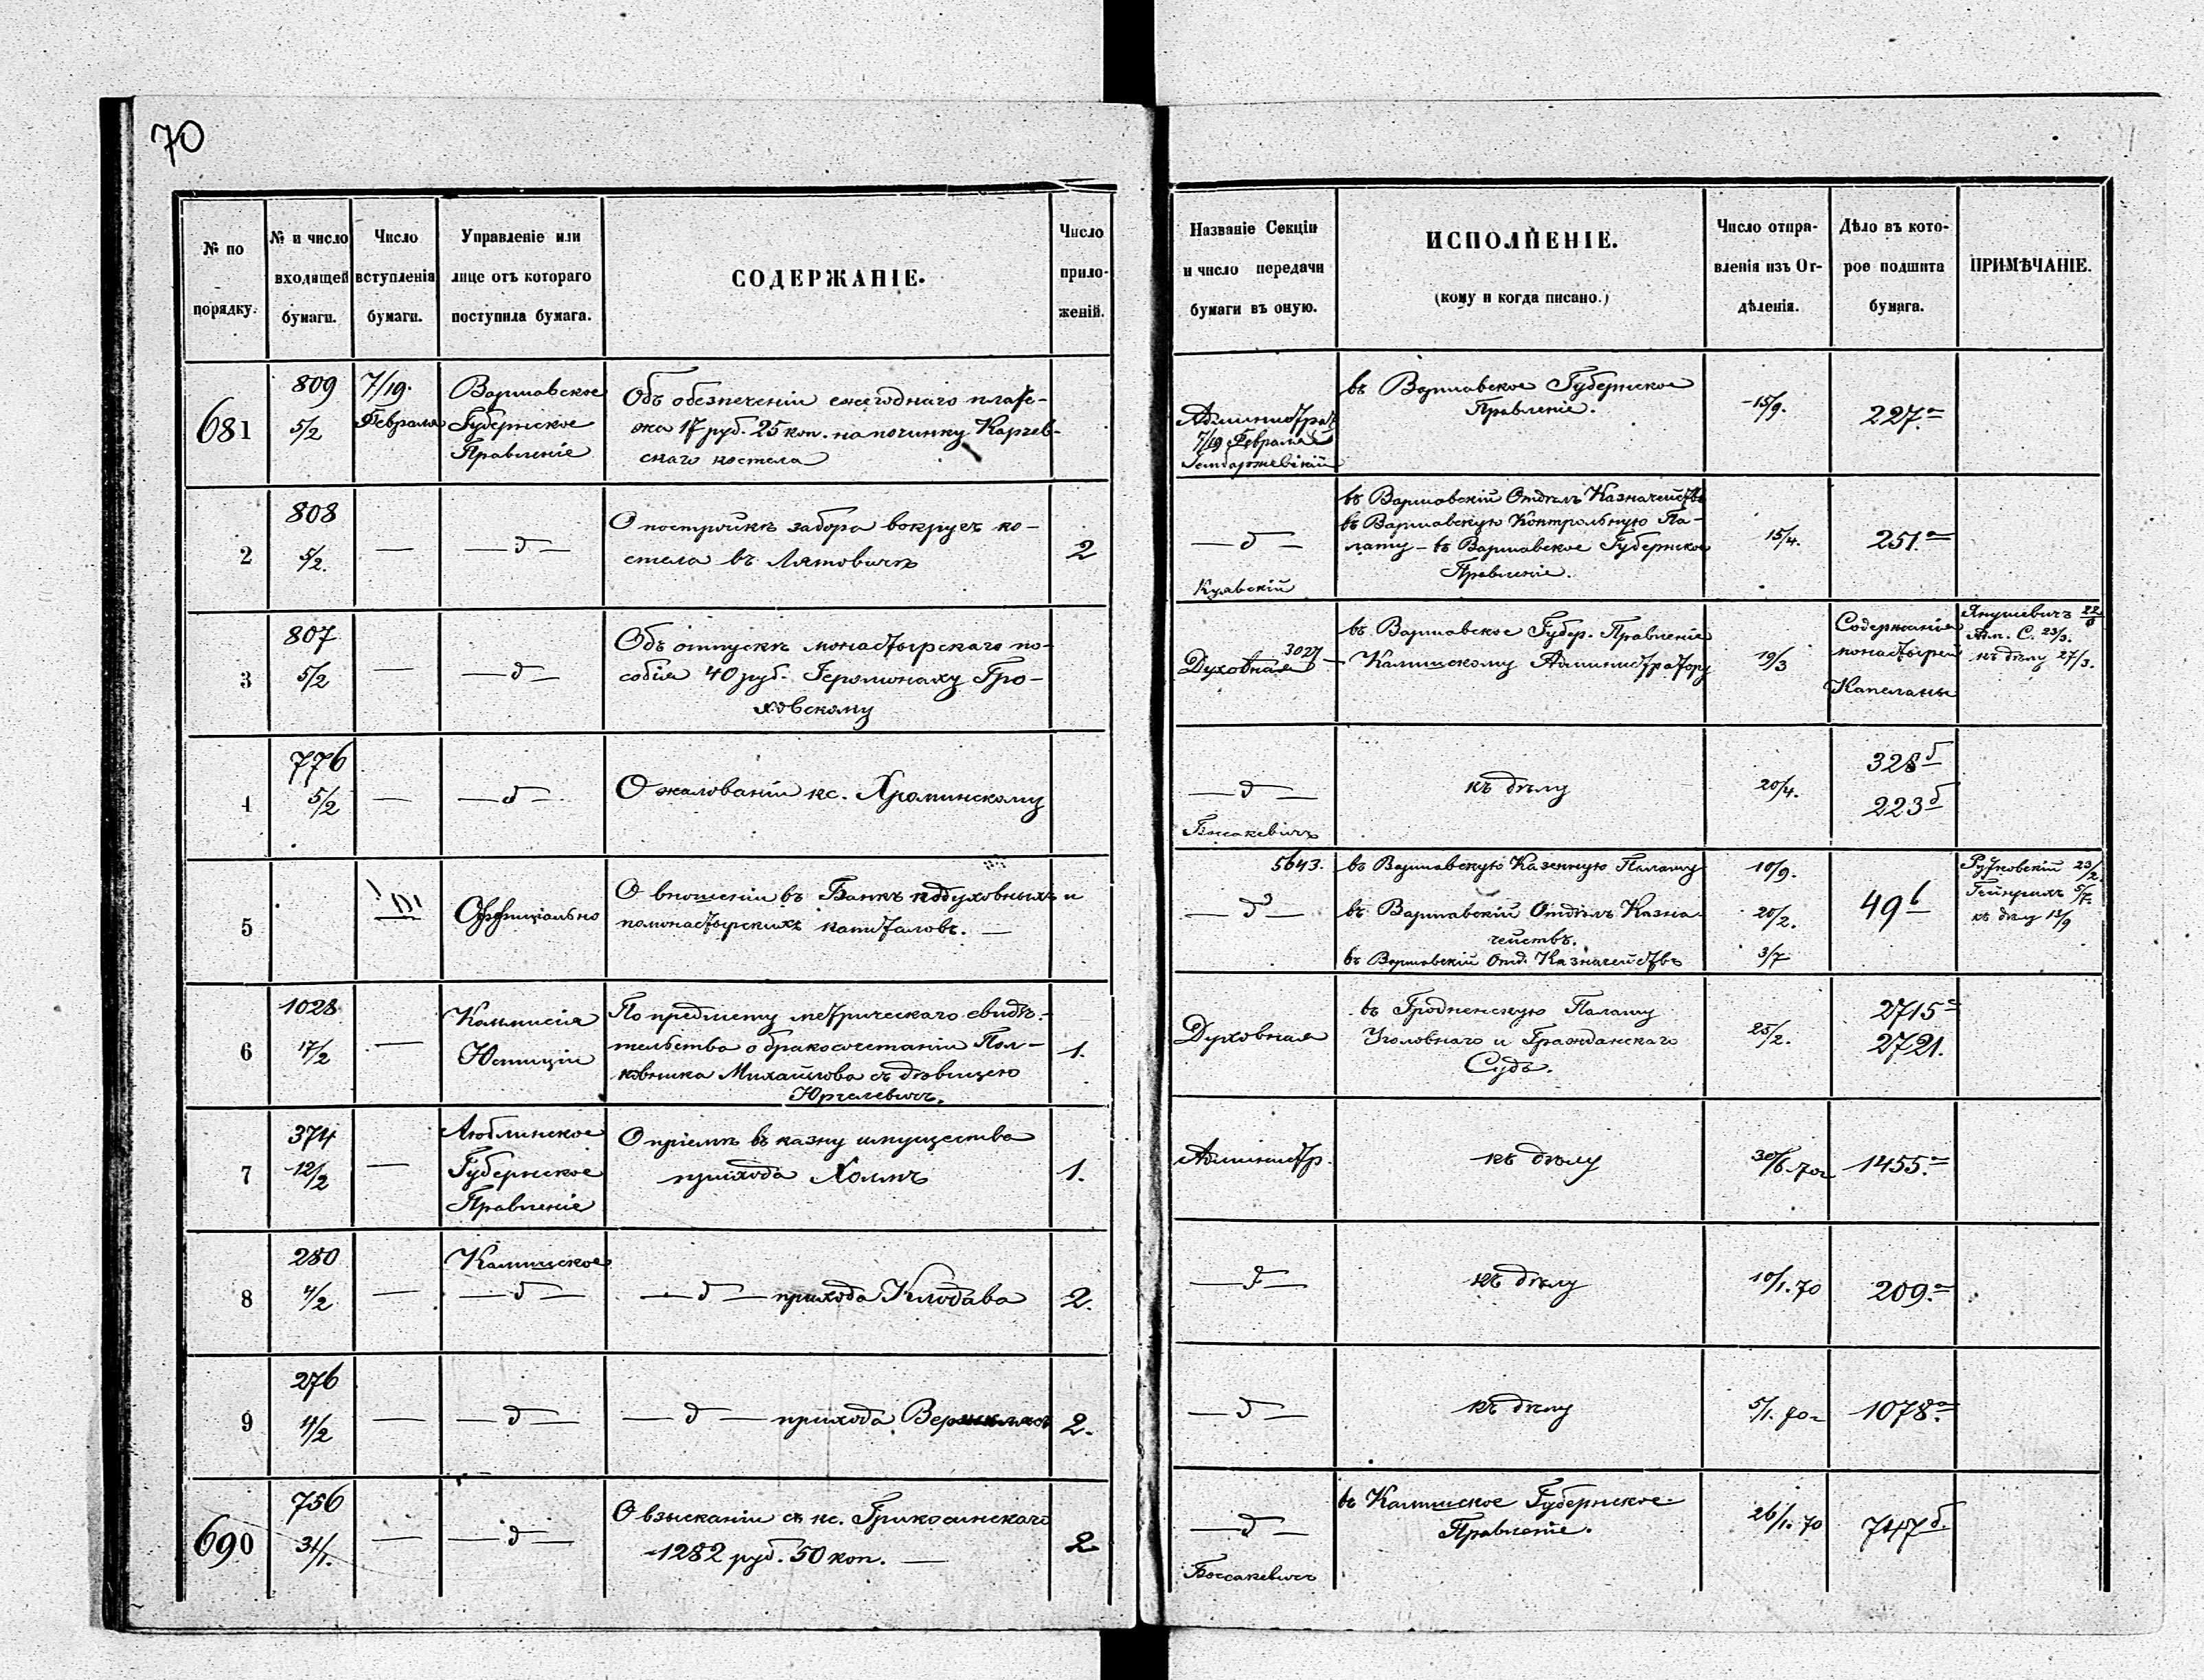 70
№ по порядку.
№ и число входящей бумаги.
Число вступленія бумаги.
Управленіе или лице отъ котораго поступила бумага.
СОДЕРЖАНІЕ.
Число приложеній.
Названіе Секціи и число передачи бумаги въ оную.
ИСПОЛНЕНІЕ.
(кому и когда писано.)
Число отправленія изъ Отдѣленія.
Дѣло въ которое подшита бумага.
ПРИМѢЧАНІЕ.
681
809
5/2
7/19.
Февраля
Варшавское
Губернское
Правленіе
Объ обезпеченіи ежегоднаго плате-
жа 17 руб. 25 коп. на починку Карчев-
скаго костела
Администрат.
7/19 Февраля
въ Варшавское Губернское
Правленіе.
15/9.
227.а
2
808
5/2.
—
— д —
О постройкѣ забора вокругъ ко-
стела въ Лятовичѣ
2
— д —
Куявскій
въ Варшавскій Отдѣлъ Казначействъ
въ Варшавскую Контрольную Па-
лату – въ Варшавское Губернское
Правленіе.
15/4.
251.а
3
807
5/2
—
— д —
Объ отпускѣ монастырскаго по-
собія 40 руб. Іеромонаху Гро-
ховскому
Духовная
3027
въ Варшавское Губер. Правленіе
Калишскому Администратору
19/3
Содержаніе
монастырей
Капеланы
Янушевичъ 22/
Адм. С. 23/3.
къ дѣлу 27/3.
4
776
5/2
—
— д —
О жалованіи кс. Хроминскому
— д —
Боссакевичъ
къ дѣлу
20/4.
328 б
223 б
5
Оффиціально
О вношеніи въ Банкъ подуховныхъ и
помонастырскихъ капиталовъ. —
— д —
5643.
въ Варшавскую Казенную Палату
въ Варшавскій Отдѣлъ Казна-
чействъ.
въ Варшавскій Отд. Казначействъ
10/9.
20/2.
3/7
49 б
23/2.
Гейнрихъ 5/7.
къ дѣлу 12/9
6
1028
17/2
—
Коммисія
Юстиціи
По предмету метрическаго свидѣ-
тельства о бракосочетаніи Пол-
ковника Михайлова съ дѣвицею
Юргелевичъ.
1.
Духовная
въ Гродненскую Палату
Уголовнаго и Гражданскаго
Суда.
25/2.
2715 а
2721.
7
374
12/2
—
Люблинское
Губернское
Правленіе
О пріемѣ въ казну имущества
прихода Холмъ
1.
Администр.
къ дѣлу
30/6. 70г
1455.а
8
280
4/2
—
Калишское
— д —
— д — прихода Клодава
2.
— д —
къ дѣлу
10/1. 70
209.а
9
276
4/2
—
— д —
— д — прихода
2.
— д —
къ дѣлу
5/1. 70г
1078.а
690
756
31/1.
—
— д —
О взысканіи съ кс. Грикосинскаго
1282 руб. 50 коп. —
2
— д —
Боссакевичъ
въ Калишское Губернское
Правленіе.
26/1. 70
747 б.